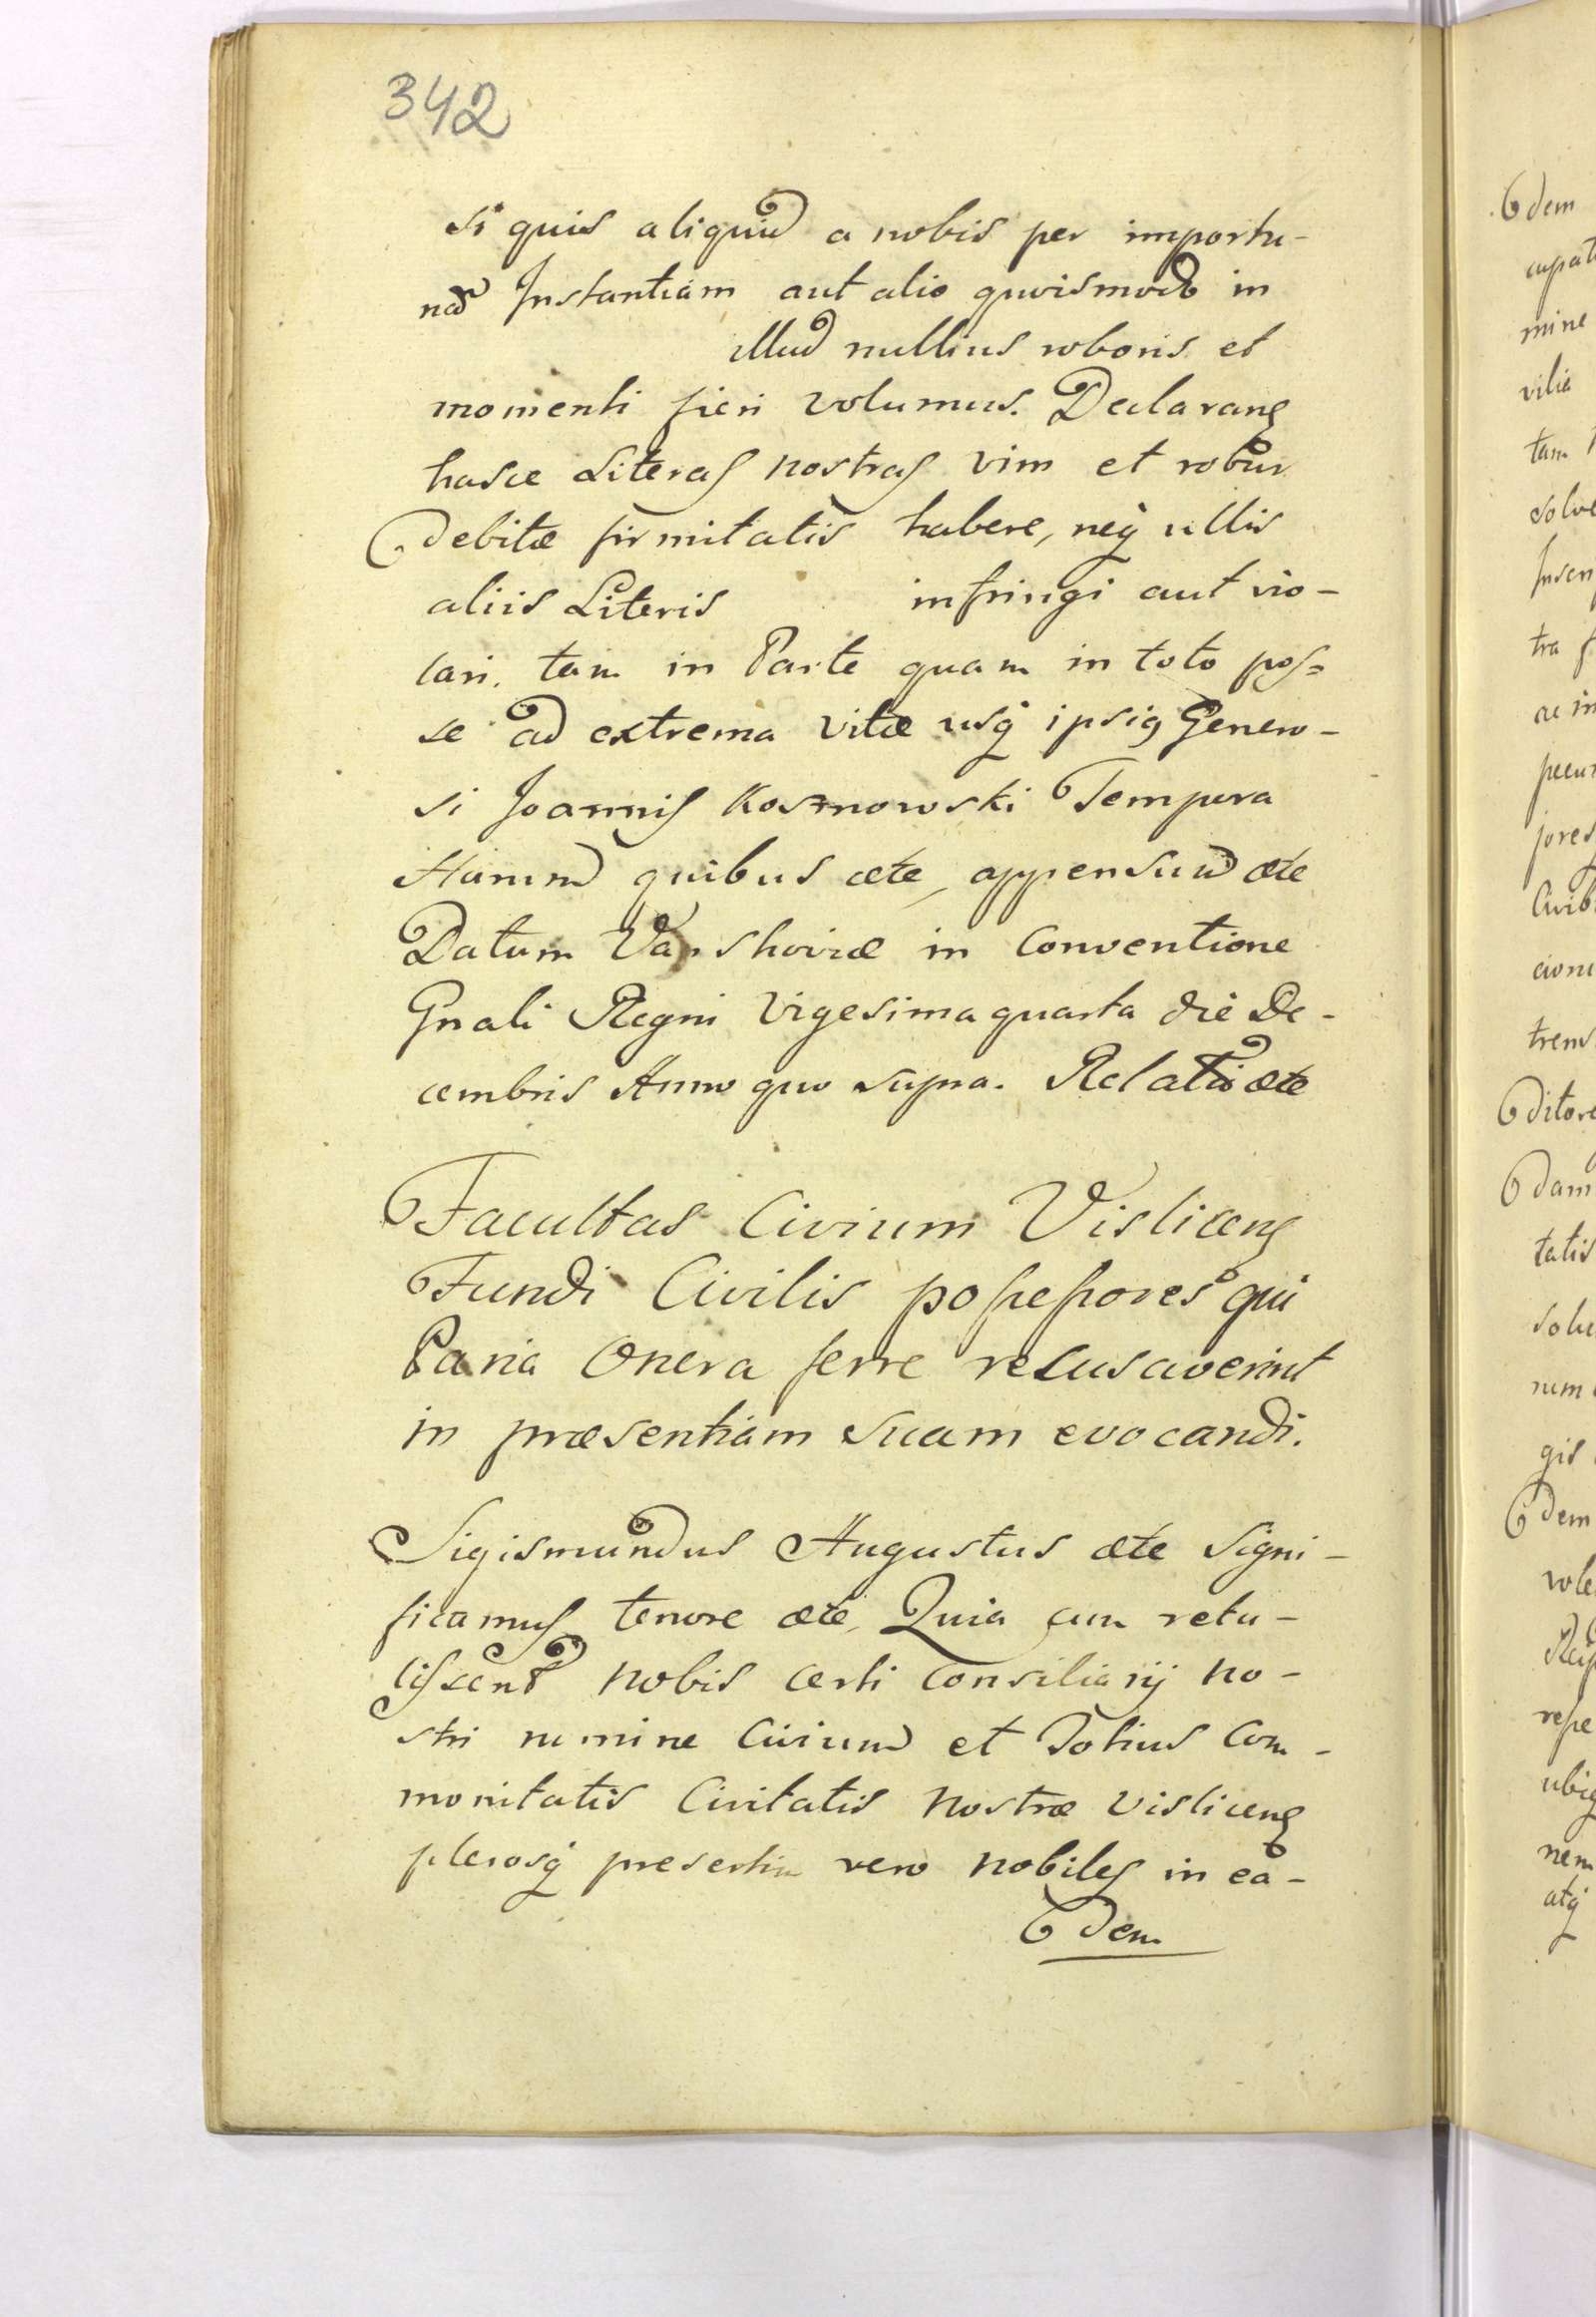 342
si quis aliquid a nobis per importu-
nam Instantiam aut alio quovismodo in
illud nullius roboris et
momenti fieri volumus. Declarang
hasce Literas nostras vim et robur
debitæ firmitatis habere, neq ullis
aliis Literis infringi aut vio-
lari, tam in Parte quam in toto pos=
se ad extrema vitæ usq ipsig Genero-
si Joannis Kosznowski Tempora
Harum quibus æte, appensum æte
Datum Varshoviæ in Conventione
Gnali Regni vigesima quarta die De-
cembris Anno quo supra. Relatio æte
Facultas Civium Visliceng
Fundi Civilis possessores qui
Paria Onera ferre recusaverint
in præsentiam suam evocandi.
Sigismundus Augustus æte Signi-
ficamus tenore æte, Quia cum retu-
lissent nobis certi Consiliarij no-
stri nomine Civium et Totius Com-
monitatis Civitatis Nostræ visliceng
plerosq presertim vero Nobiles in ea-
dem
dem
mine
vilia
tam
solve
tra
jores
trem
ditore
dam
tatis
num
gis
dem
nem
atq